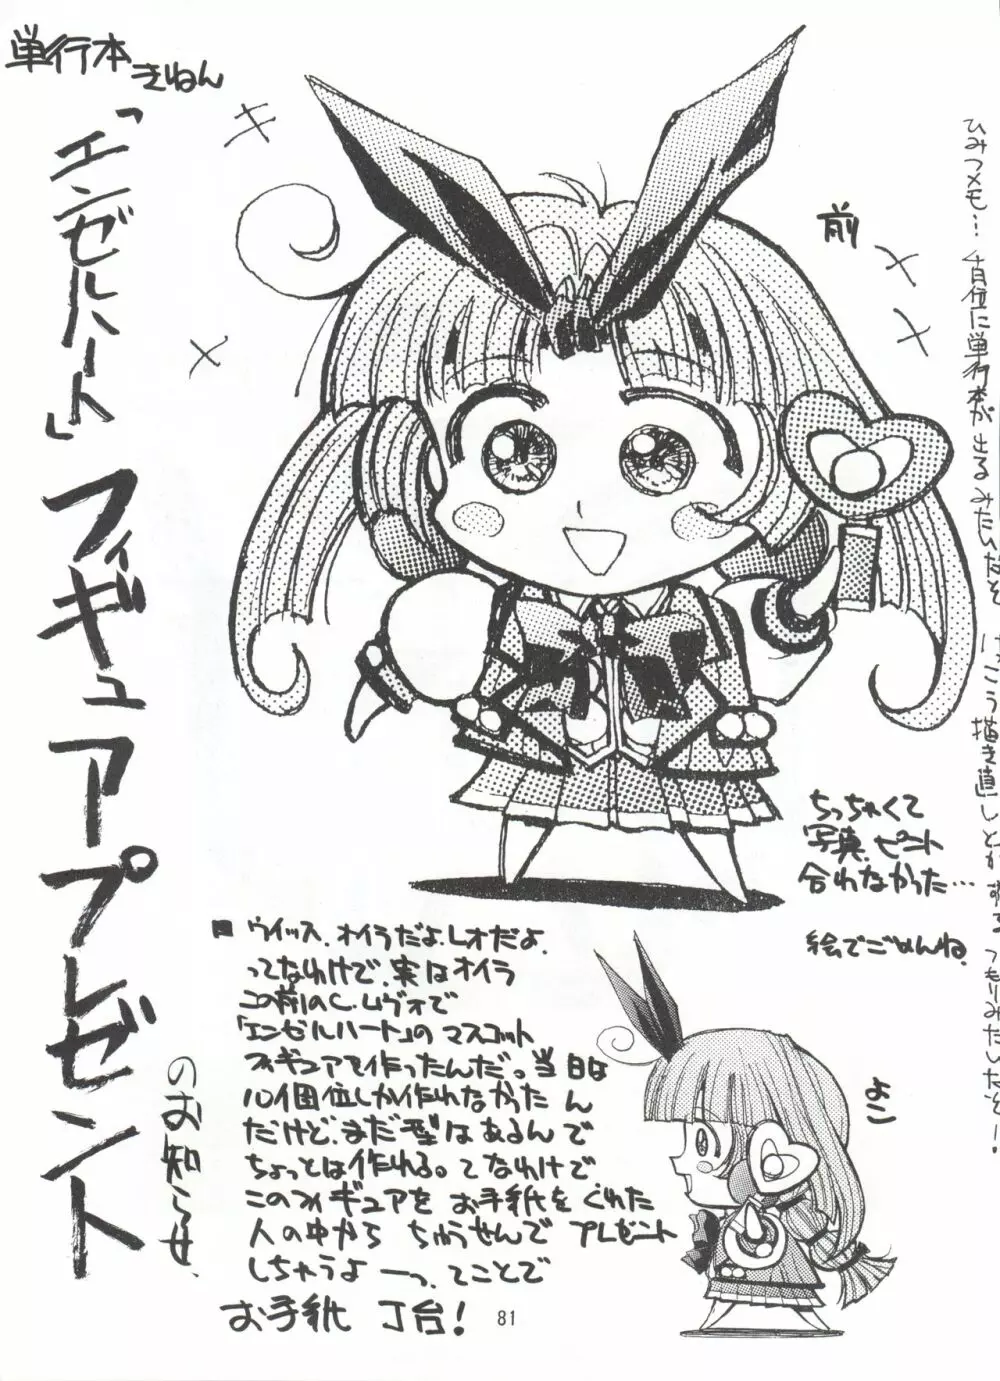 単行本
きねん
「エンゼルハート」
フィギュアプレゼント
のお知らせ、
前
ひみつメモ…
に単行本が出るみたいだぞ
けっこう描き直しとか
つもりみたいだぞー!
ちっちゃくて
写真、ピント
合わなかった…
絵でごめんね、
よこ
■ ウイッス、オイラだよ、レオだよ、
ってなわけで、実はオイラ
この前のC.レヴォで
「エンゼルハート」のマスコット
フィギュアを作ったんだ。当日は
10個位しか作れなかったん
だけど、まだ型はあるんで
ちょっとは作れる。てなわけで
このフィギュアを お手紙をくれた
人の中から ちゅうせんで プレゼント
しちゃうよーっ、てことで
お手紙 丁台!
81